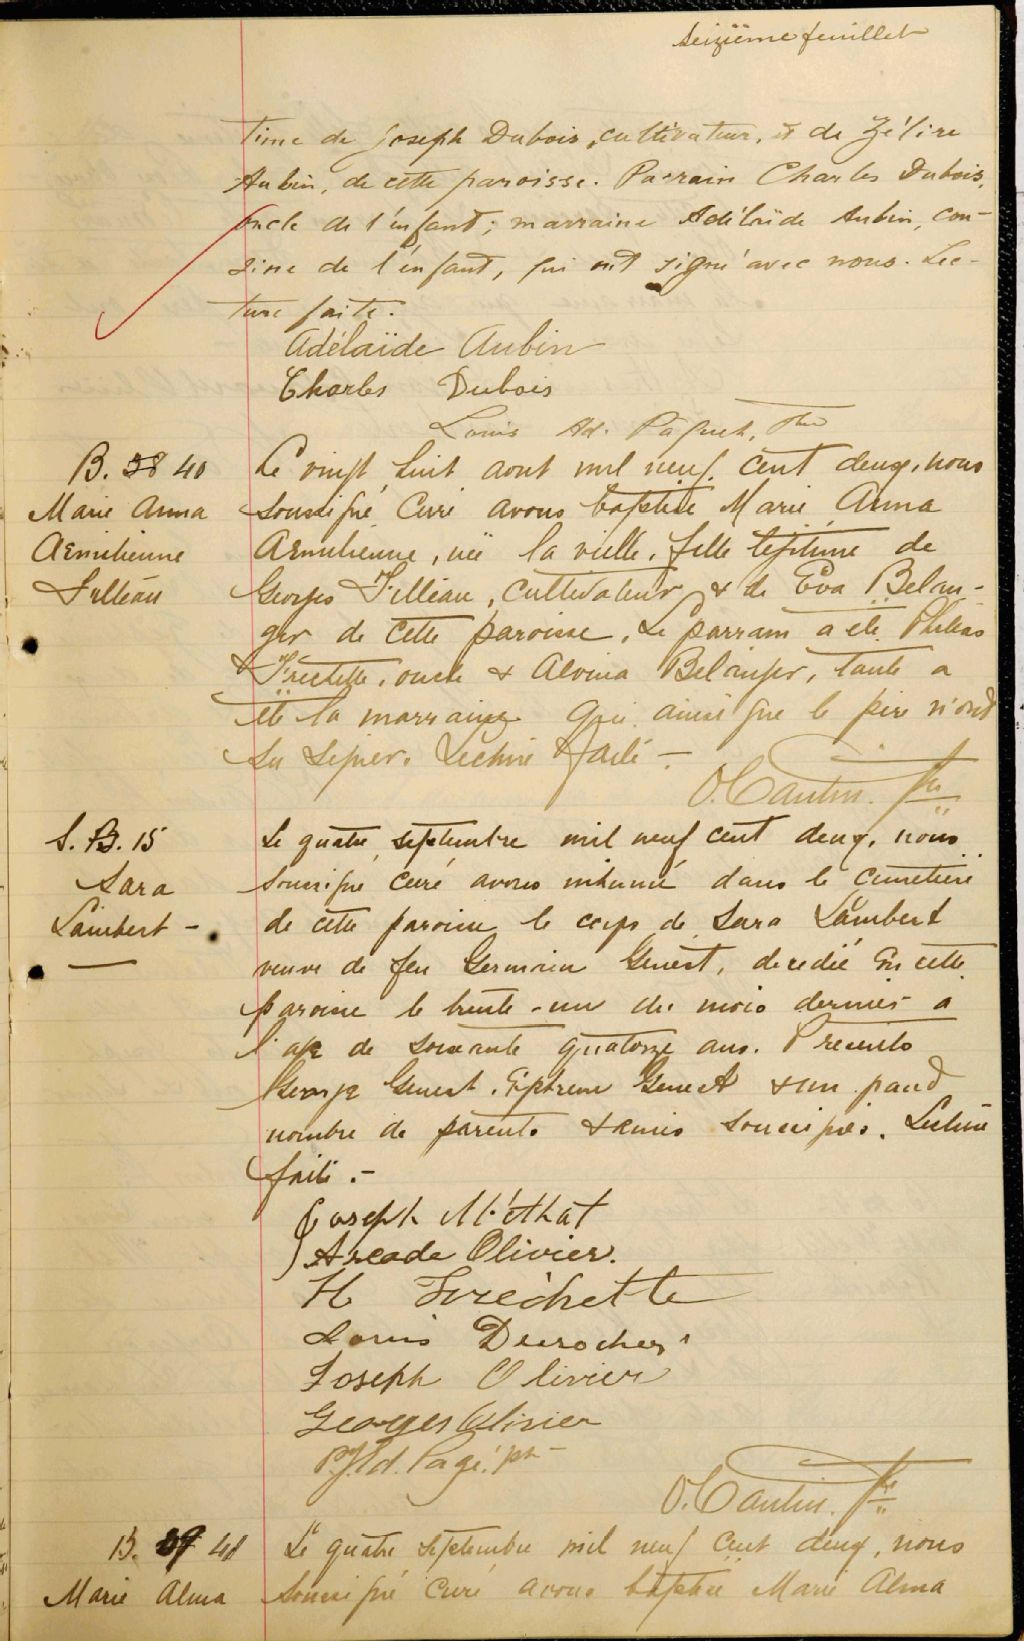 Seizième feuillet
time de Joseph Dubois, cultivateur, et de Zélire
Aubin, de cette paroisse. Parrain Charles Dubois,
oncle de l'enfant; marraine Adélaïde Aubin, cou-
sine de l'enfant, qui ont signé avec nous. Lec-
ture faite.
Adélaïde Aubin
Charles Dubois
Louis Ad. Paquet, Ptre
B. 38 40
Marie Anna
Aemilienne
Filleau
Le vingt huit aout mil neuf cent deux, nous
soussigné Curé avons baptisé Marie Anna
Aemilienne, née la vielle, fille légitime de
Georges Filleau, cultivateur & de Eva Belan-
ger de cette paroisse. Le parrain a été Philéas
Fréchette, oncle & Alvina Bélanger, tante a
été la marraine qui ainsi que le père n'ont
su signer. Lecture faite —
O. Cantin. Ptre
S. B. 15
Sara
Lambert —
Le quatre septembre mil neuf cent deux, nous
soussigné curé avons inhumé dans le cimetière
de cette paroisse le corps de Sara Lambert
veuve de feu Germain Genest, décédé en cette
paroisse le trente-un du mois dernier à
l'age de soixante quatorze ans. Présents
George Genest, Ephrem Genest & un grand
nombre de parents & amis soussignés. Lecture
faite.—
Joseph Méthot
Arcade Olivier.
H Fréchette
Louis Desrochers
Joseph Olivier
Georges Olivier
Pagé, ptr
O. Cantin. Ptre
B. 39 41
Marie Alma
Le quatre septembre mil neuf cent deux, nous
soussigné curé avons baptisé Marie Alma